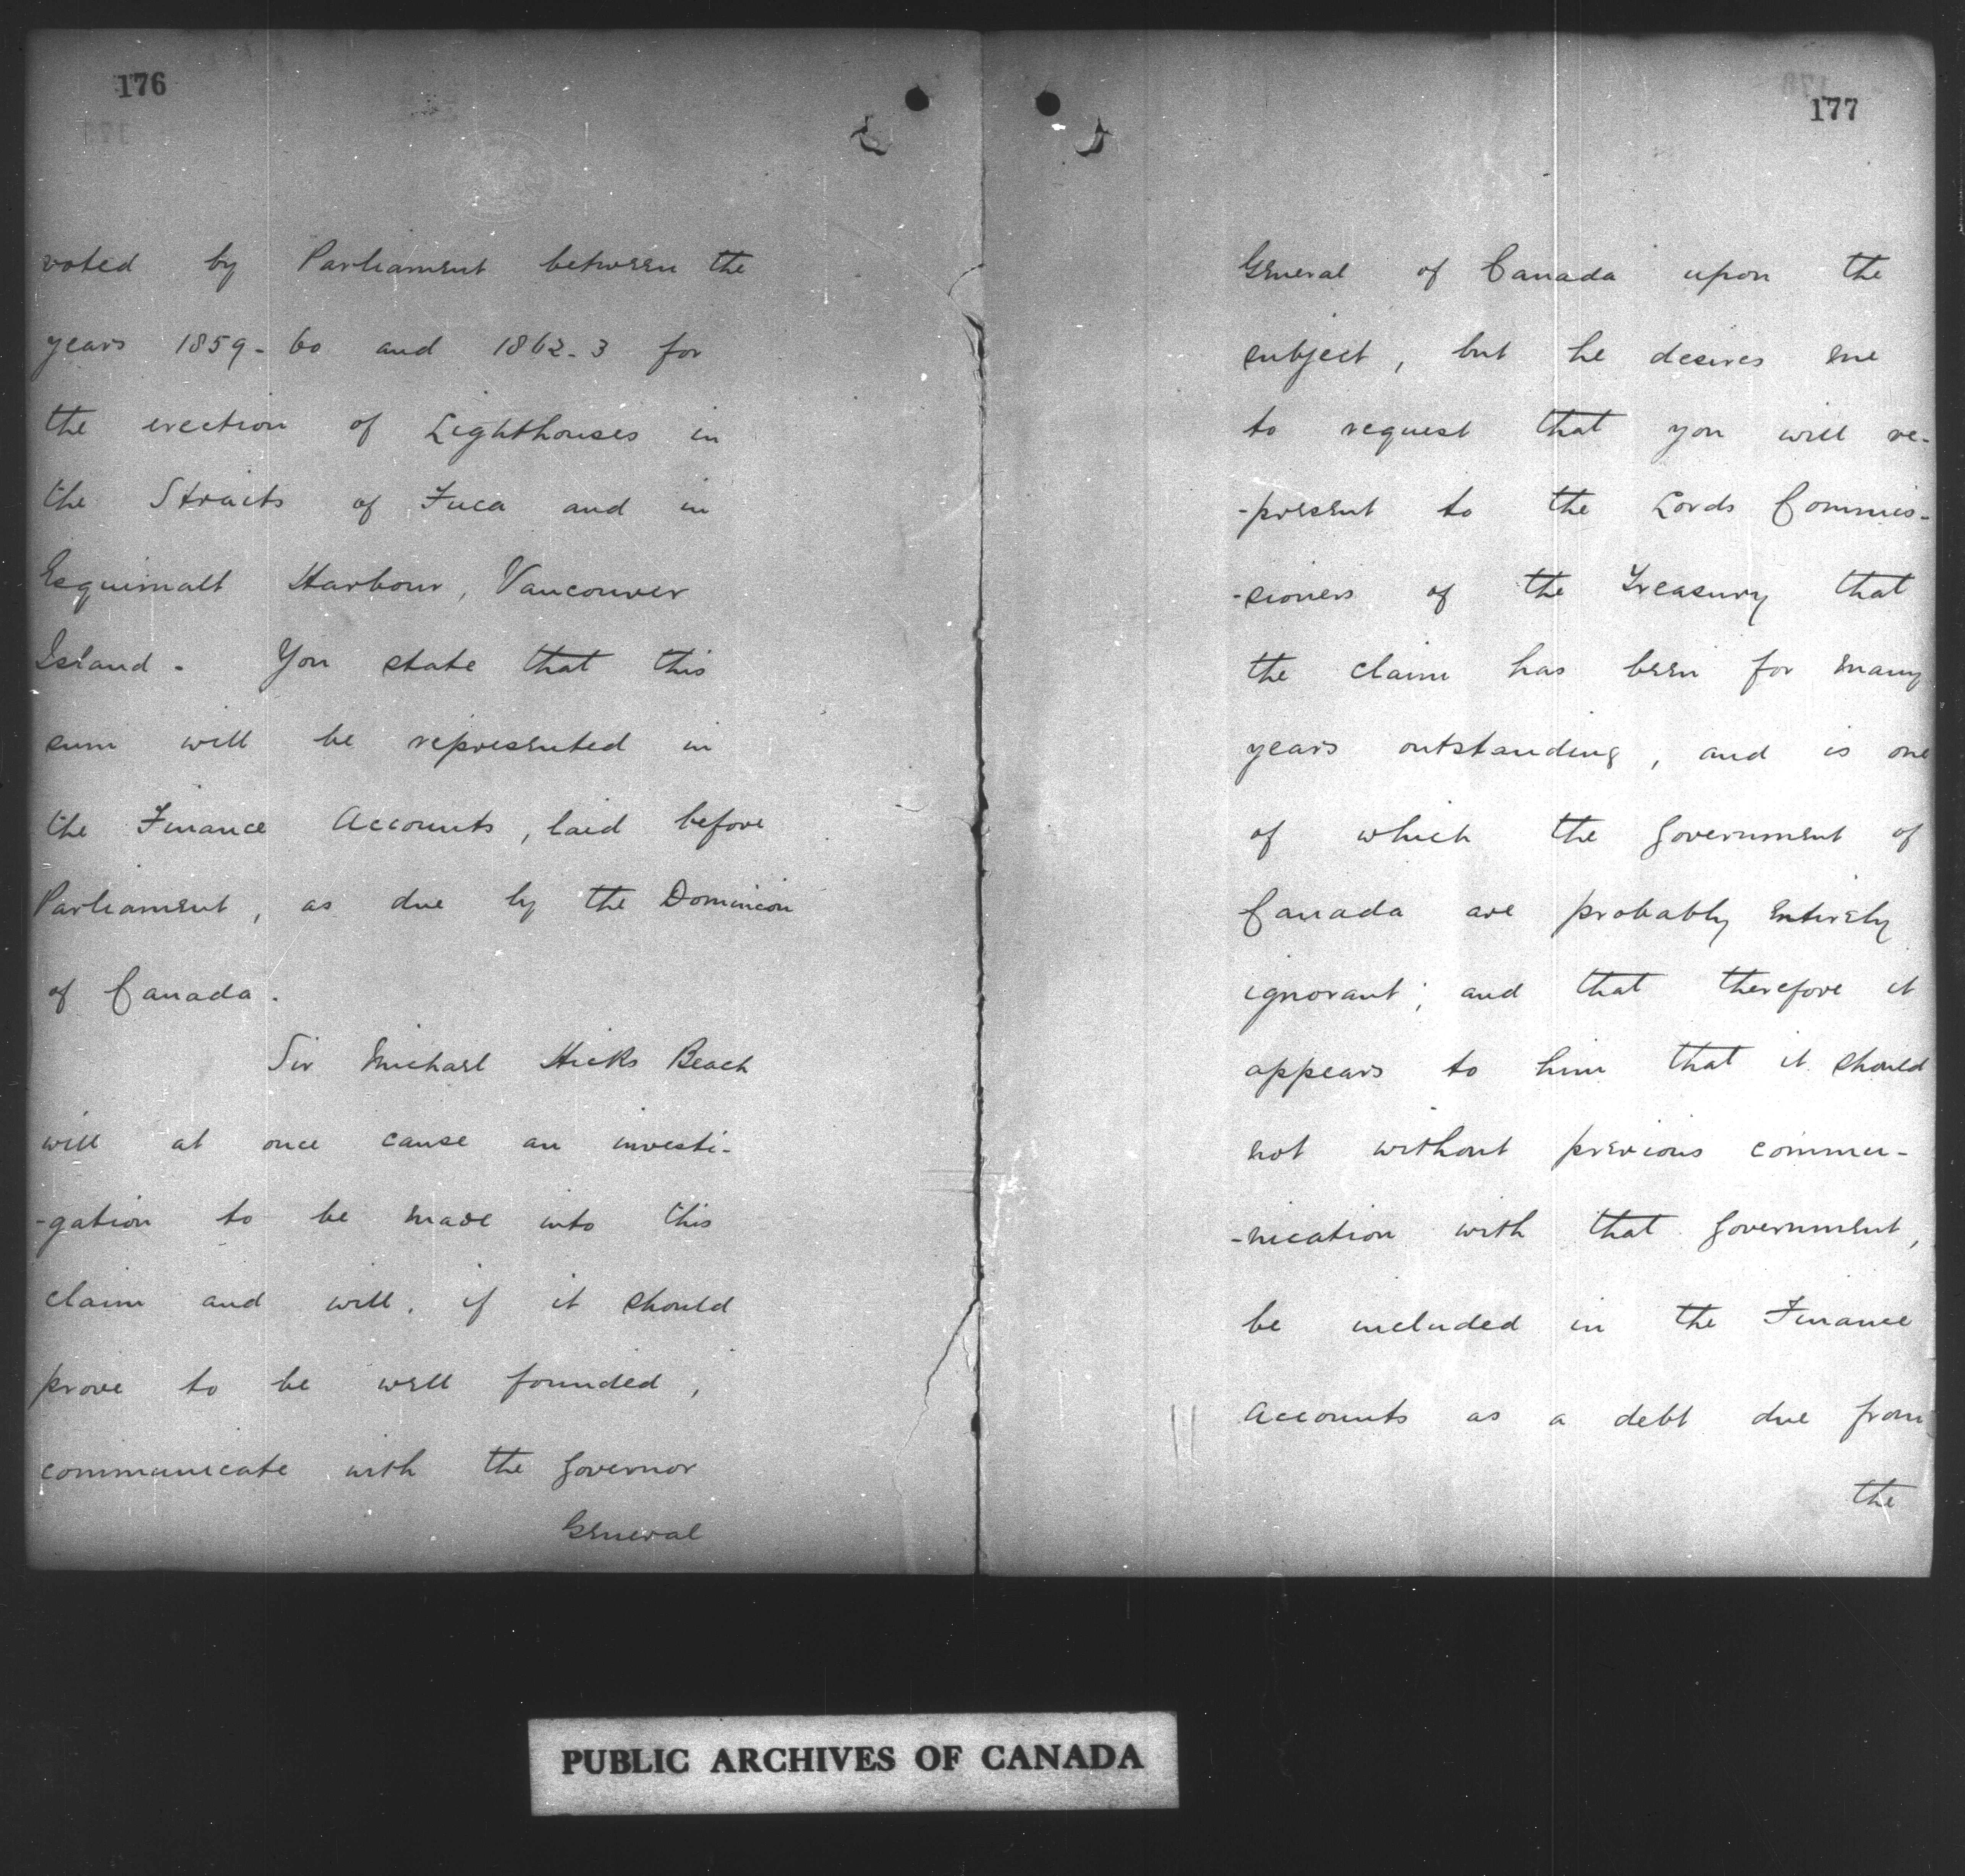 176
voted by Parliament between the
years 1859-60 and 1862-3 for
the erection of Lighthouses in
the Straits of Fuca and in
Esquimalt Harbour, Vancouver
Island. You state that this
sum will be represented in
the Finance Accounts, laid before
Parliament, as due by the Dominion
of Canada.
Sir Michael Hicks Beach
will at once cause an investi-
-gation to be made into this
claim and will, if it should
prove to be well founded,
communicate with the Governor
General
177
General of Canada upon the
subject, but he desires me
to request that you will re-
-present to the Lords Commis-
-sioners of the Treasury that
the claim has been for many
years outstanding, and is one
of which the Government of
Canada are probably entirely
ignorant; and that therefore it
appears to him that it should
not without previous commu-
-nication with that Government,
be included in the Finance
Accounts as a debt due from
the
PUBLIC ARCHIVES OF CANADA